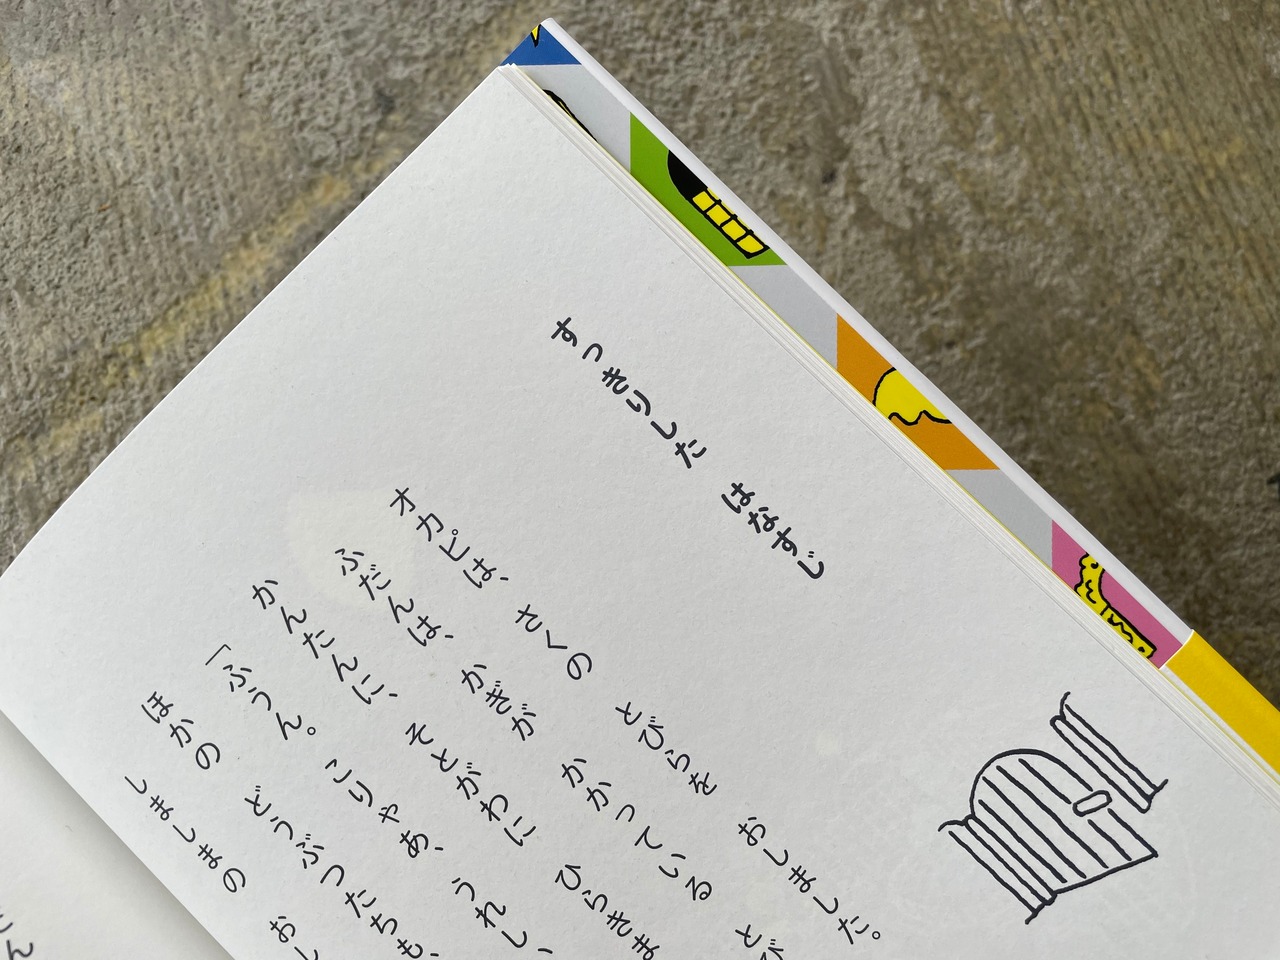 すっきりした はなすじ
オカピは、 さくの とびらを おしました。
ふだんは、 かぎが かかっている とび
かんたんに、 そとがわに ひらきま
「ふうん。 こりゃあ、 うれし
ほかの どうぶつたちも、
しましまの おし